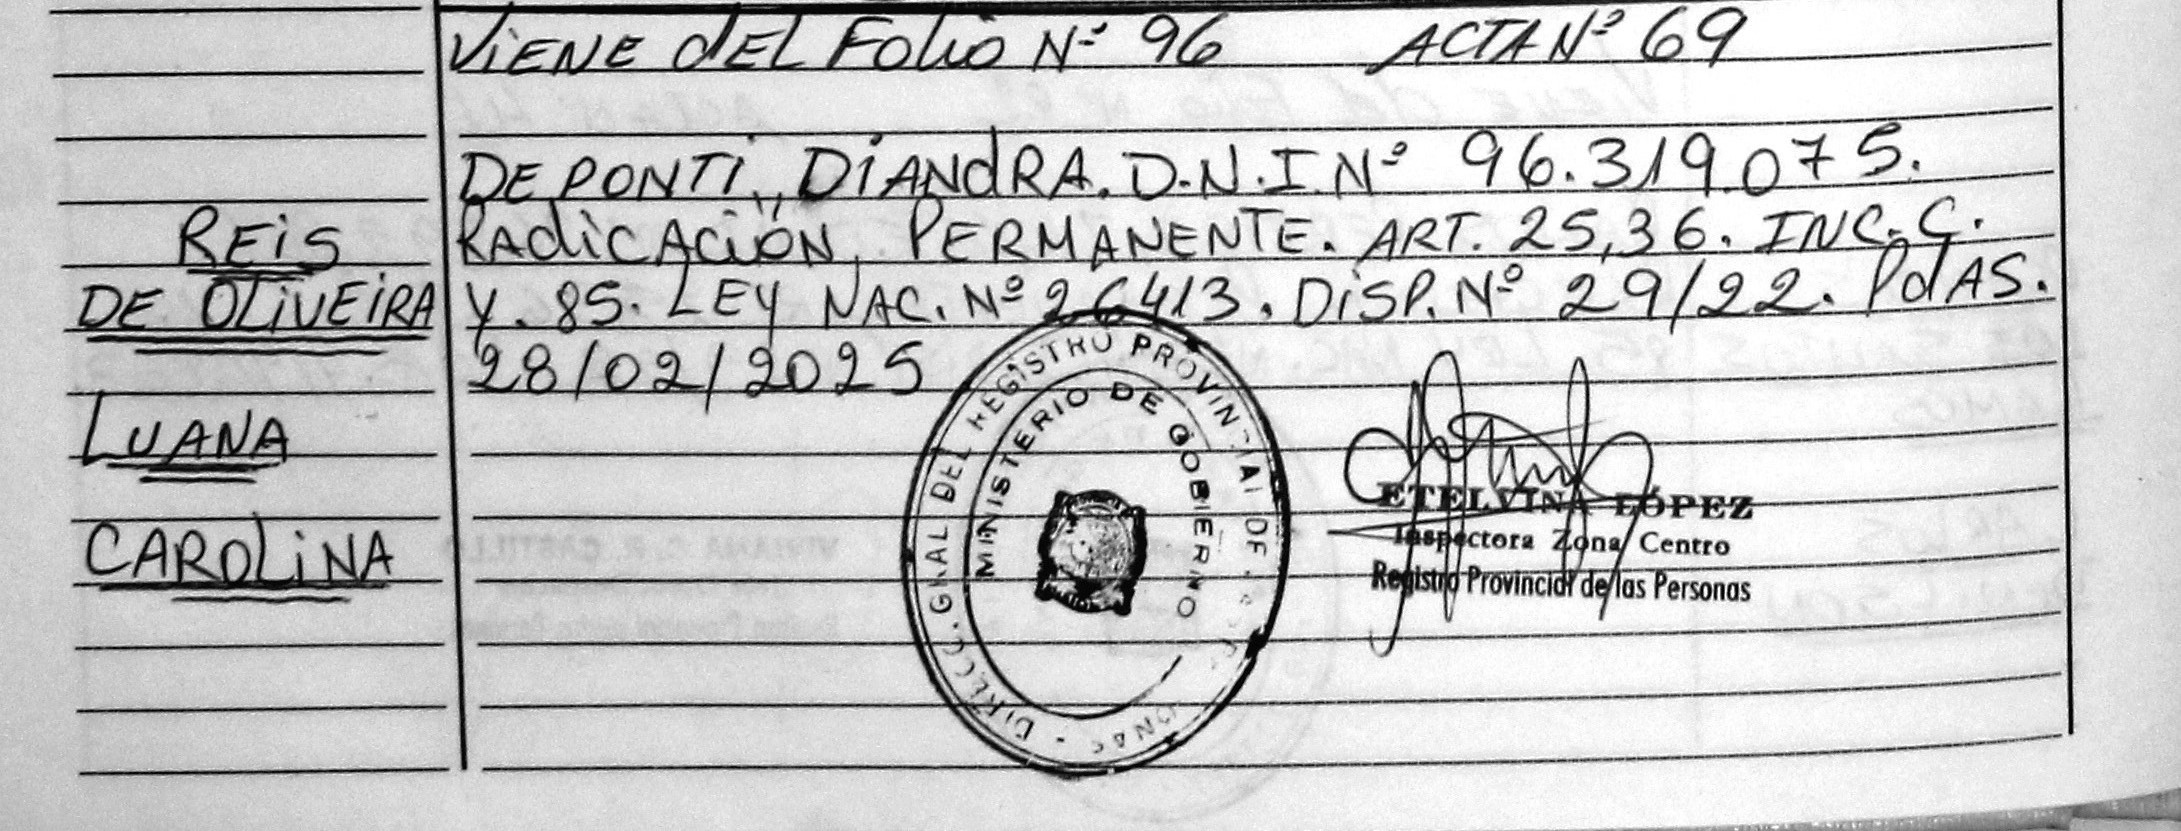 ViENE dEL Folio Nº 96 ACTA Nº 69
DE PONTi, DiANdRA. D.N.I.Nº 96.319.075.
RAdiCACiÓN, PERMANENTE. ART. 25,36. INC.C.
Y. 85. LEY NAC. Nº 26413. DiSP. Nº 29/22. PdAS.
28/02/2025
REiS
DE OLiVEiRA
LUANA
CAROLiNA
MINISTERIO DE GOBIERNO
DIRECC. GRAL DEL REGISTRO PROVINCIAL DE
ETELVINA LÓPEZ
Inspectora Zona Centro
Registro Provincial de las Personas